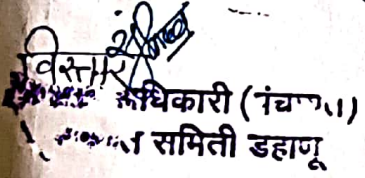 विस्तार
अधिकारी (पंचायत)
समिती डहाणू